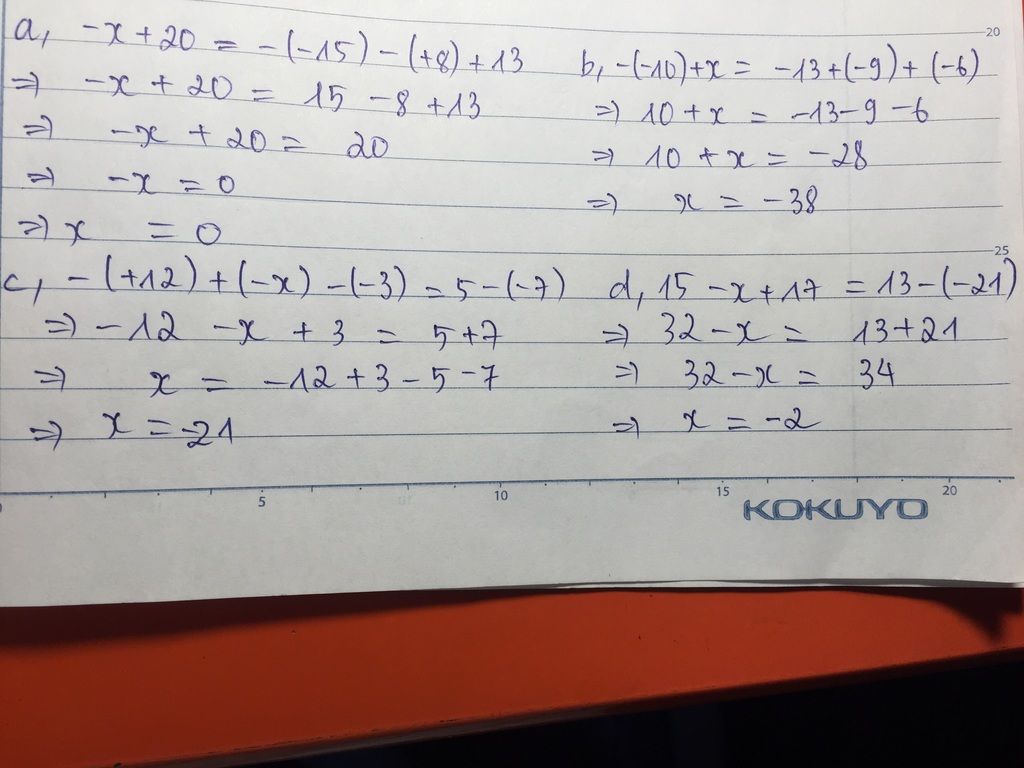 20
a, -x + 20 = -(-15) - (+8) + 13
⇒ -x + 20 = 15 - 8 + 13
⇒ -x + 20 = 20
⇒ -x = 0
⇒ x = 0
b, -(-10) + x = -13 + (-9) + (-6)
⇒ 10 + x = -13 - 9 - 6
⇒ 10 + x = -28
⇒ x = -38
25
c, -(+12) + (-x) - (-3) = 5 - (-7)
⇒ -12 - x + 3 = 5 + 7
⇒ x = -12 + 3 - 5 - 7
⇒ x = -21
d, 15 - x + 17 = 13 - (-21)
⇒ 32 - x = 13 + 21
⇒ 32 - x = 34
⇒ x = -2
5 10 15 20
KOKUYO